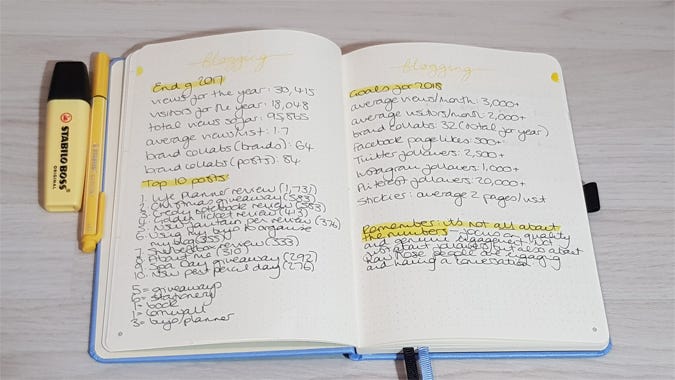 blogging
End of 2017
views for the year: 30,415
visitors for the year: 18,048
total views so far: 95,865
average views/visit: 1.7
brand collabs (brands): 64
brand collabs (posts): 84
Top 10 posts
1. Life Planner review (1,731)
2. Christmas giveaway (583)
3. Creby notebook review (583)
4. Golden Ticket review (413)
5. NSW fountain pen review (376)
6. Using my bujo to organise
my blog (355)
7. notebook review (333)
8. About me (310)
9. Spa Day giveaway (292)
10. NSW pest pencil day (276)
5 = giveaways
6 = stationery
1 = book
1 = cornwall
3 = bujo/planner
blogging
Goals for 2018
average views/month: 3,000+
average visitors/month: 2,000+
brand collabs: 32 (total for year)
Facebook page likes: 300+
Twitter followers: 2,500+
Instagram followers: 1,000+
Pinterest followers: 20,000+
Stickies: average 2 pages/visit
Remember: it's not all about
the numbers - focus on quality
and genuine engagement. Not
just about followers, but also about
how those people are engaging
and having a conversation.
STABILO BOSS
ORIGINAL